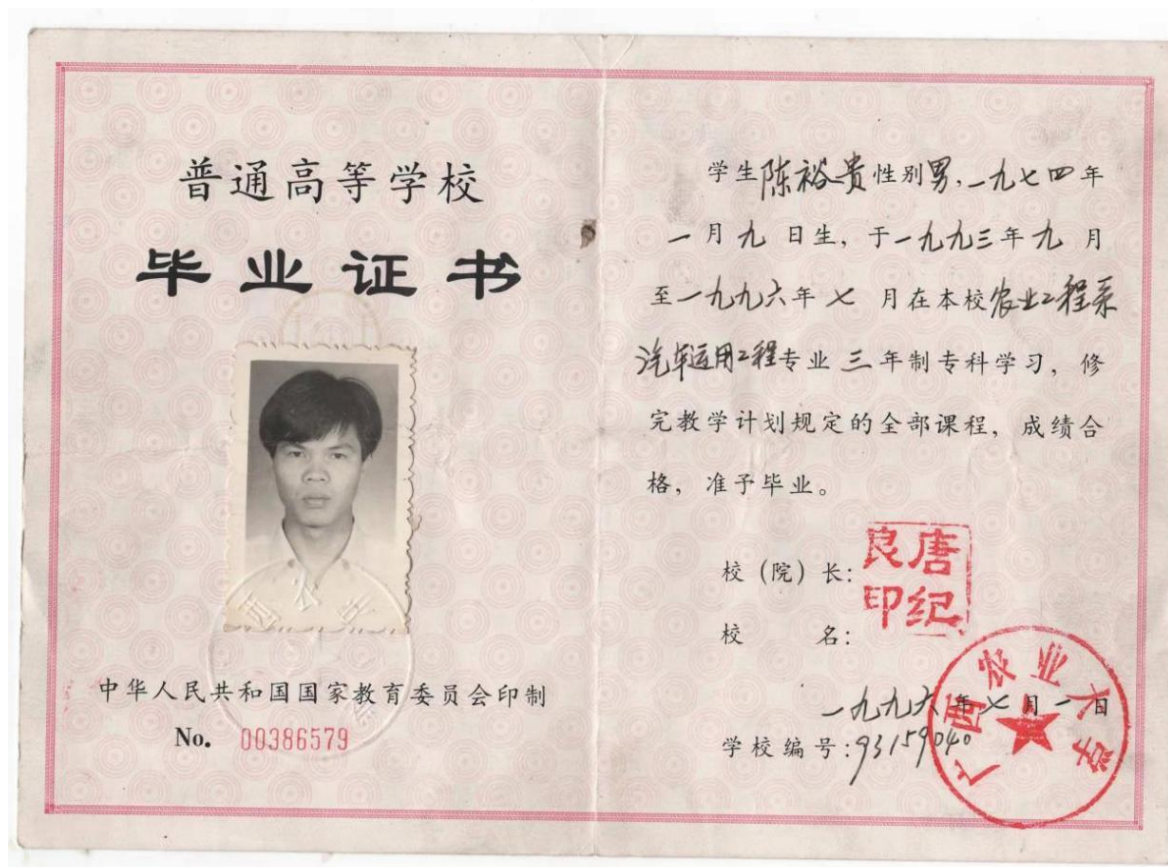 普通高等学校
毕业证书
中华人民共和国国家教育委员会印制
No. 00386579
学生陈裕贵性别男,一九七四年
一月九日生,于一九九三年九月
至一九九六年七月在本校农业工程系
汽车运用工程专业三年制专科学习,修
完教学计划规定的全部课程,成绩合
格,准予毕业。
校(院)长:唐纪良印
校名:
广西农业大学
一九九六年七月一日
学校编号:93159040